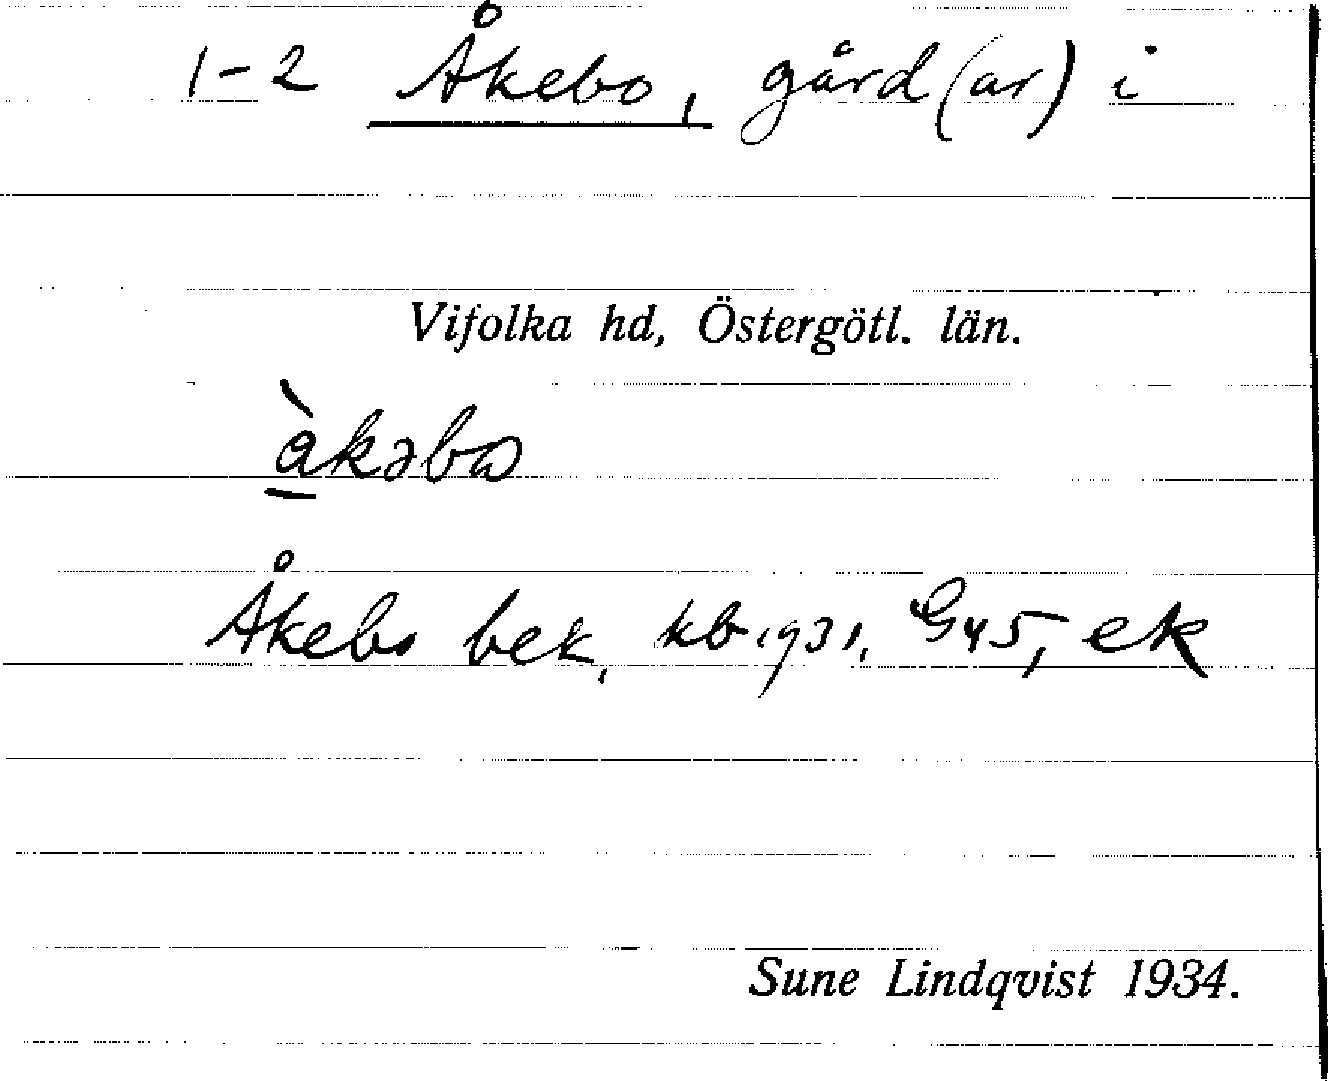 1-2 Åkebo, gård(ar) i
Vifolka hd, Östergötl. län.
àkəbω
Åkebo bek, kb 1931, G45, ek
Sune Lindqvist 1934.